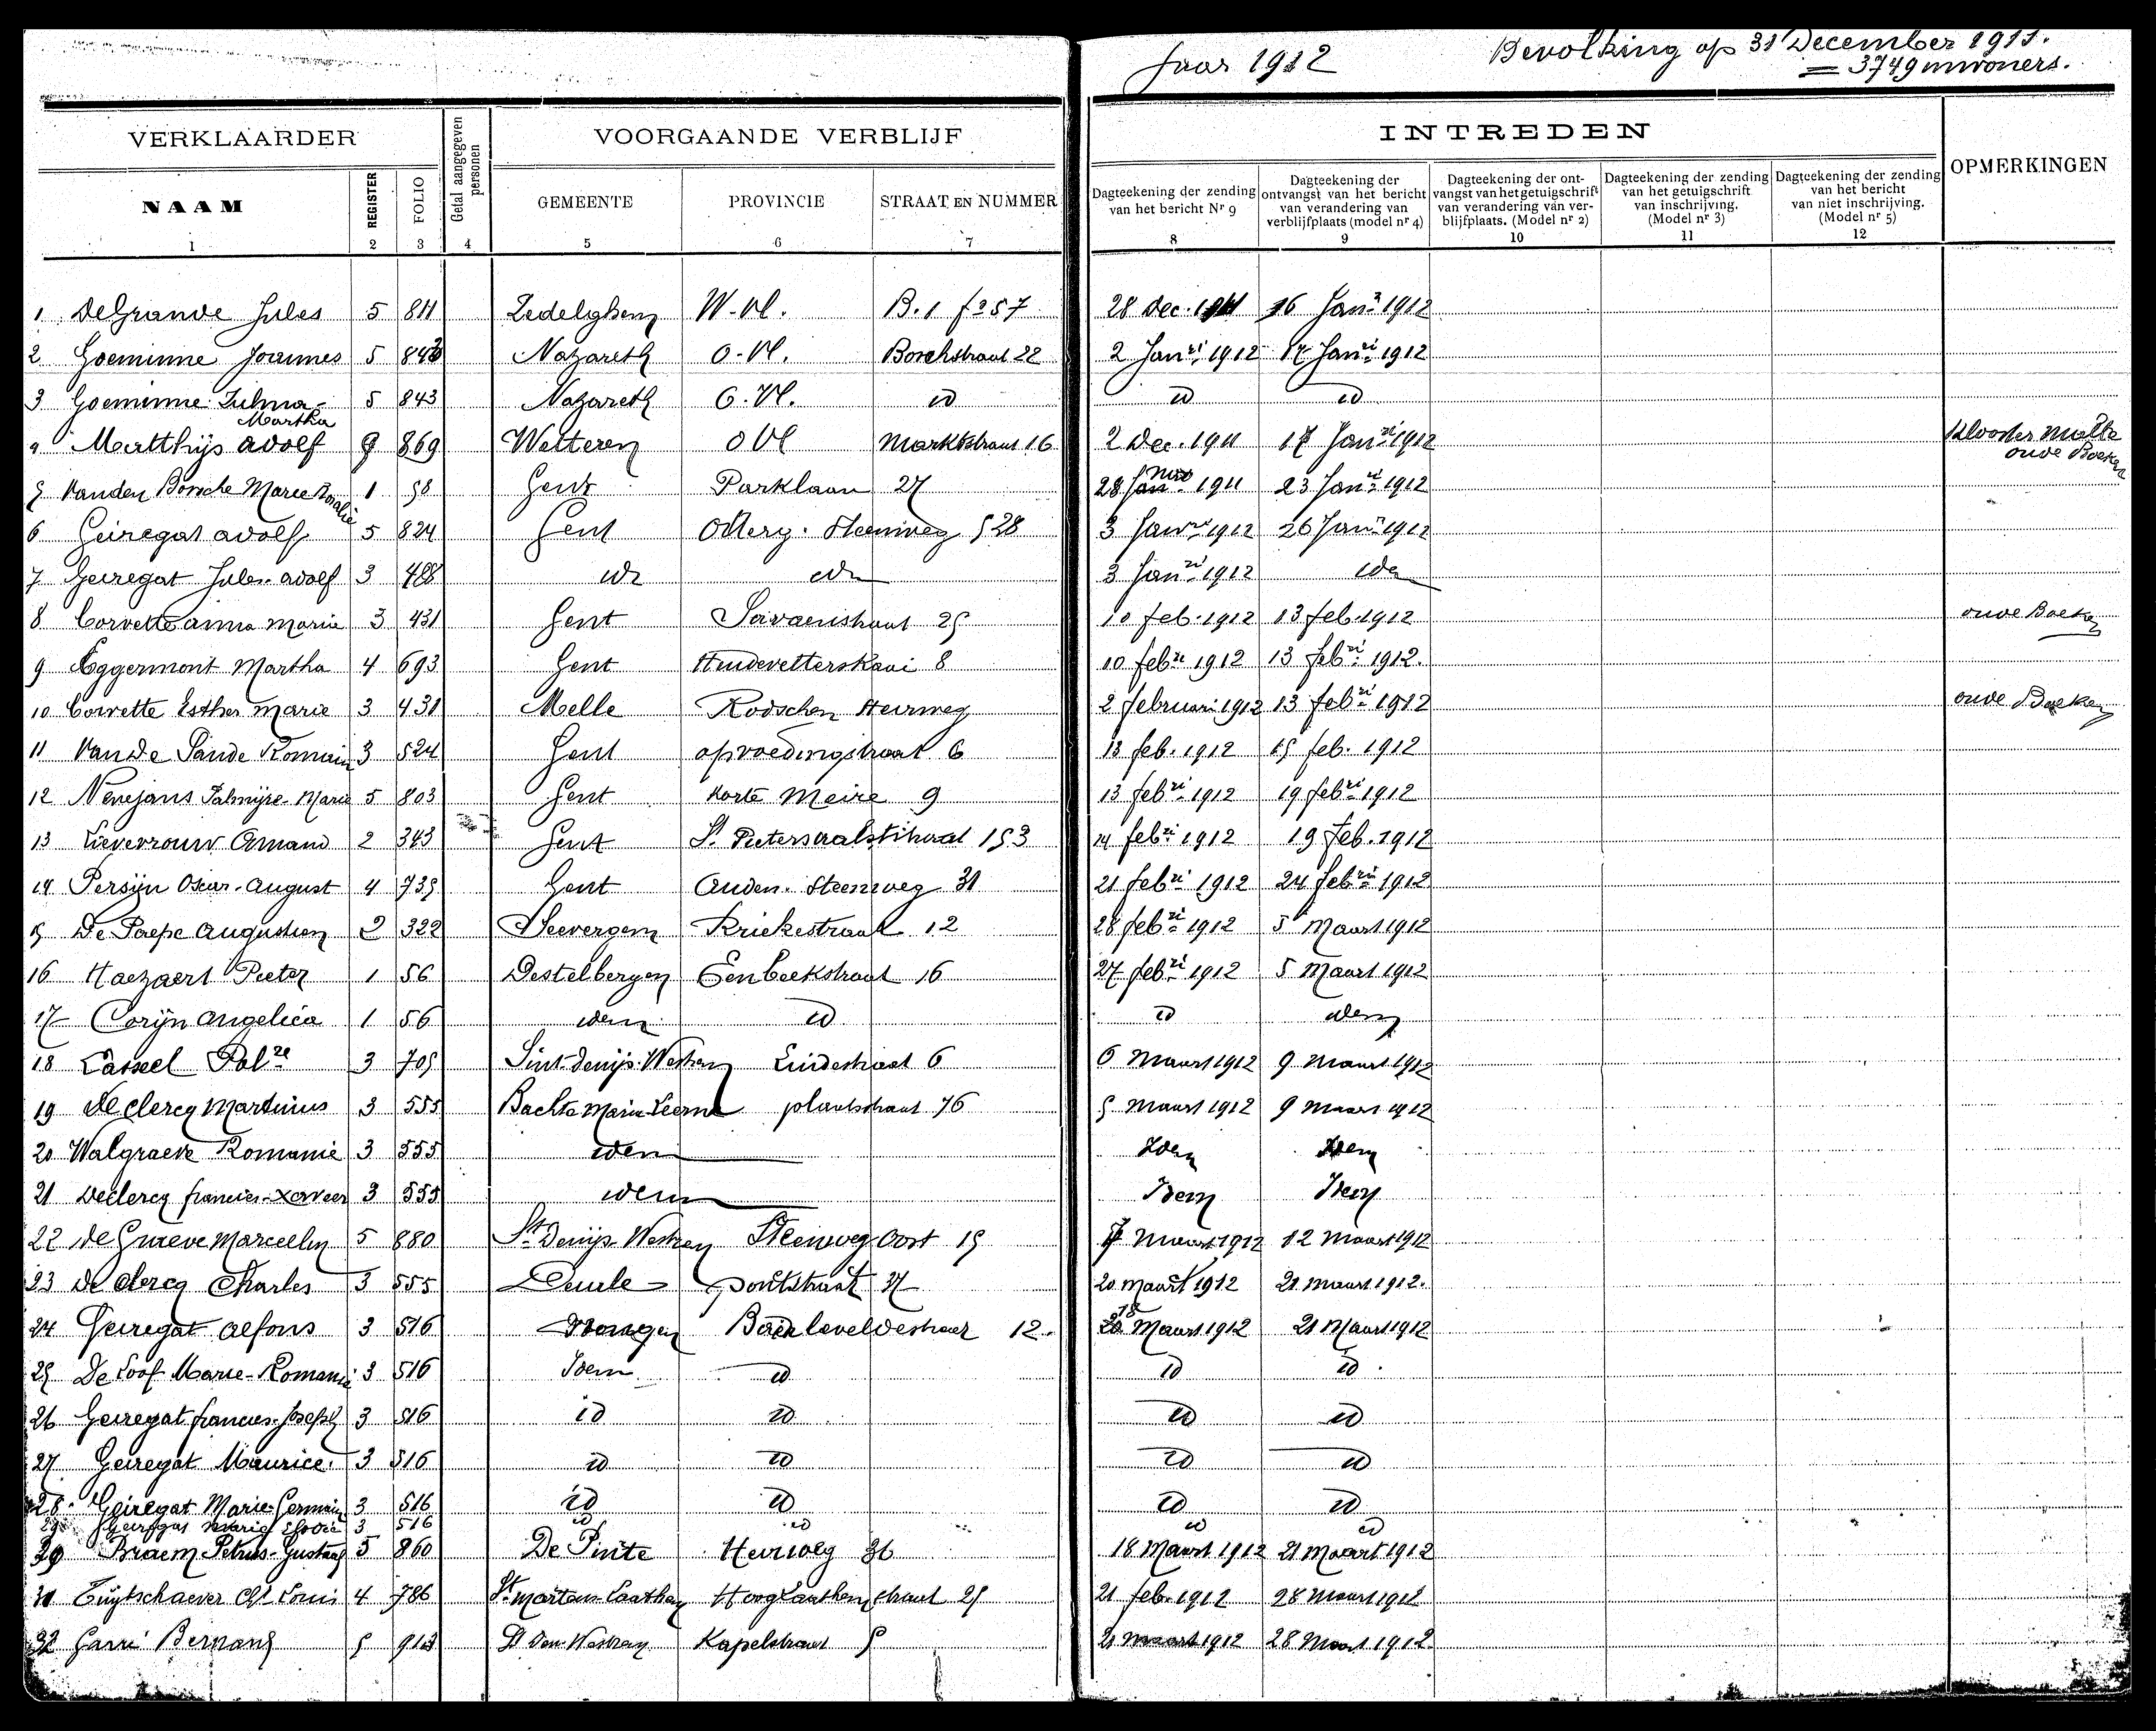 Jaar 1912
Bevolking op 31 December 1911.
= 3749 inwoners.
VERKLAARDER
Getal aangegeven personen
VOORGAANDE VERBLIJF
INTREDEN
OPMERKINGEN
NAAM
REGISTER
FOLIO
GEMEENTE
PROVINCIE
STRAAT EN NUMMER
Dagteekening der zending van het bericht Nr 9
Dagteekening der ontvangst van het bericht van verandering van verblijfplaats (model nr 4)
Dagteekening der ontvangst van het getuigschrift van verandering van verblijfplaats. (Model nr 2)
Dagteekening der zending van het getuigschrift van inschrijving. (Model nr 3)
Dagteekening der zending van het bericht van niet inschrijving. (Model nr 5)
1 2 3 4 5 6 7 8 9 10 11 12
1 DeGrande Jules 5 811 Zedelghem W-Vl. B.1 fo 57 28 Dec. 1911 16 Jan. 1912
2 Goeminne Joannes 5 843 Nazareth O-Vl. Borchstraat 22 2 Janri 1912 17 Janri 1912
3 Goeminne Zulma-Martha 5 843 Nazareth O.Vl. id id id
4 Matthijs Adolf 869 Wetteren O Vl Marktstraat 16 2 Dec. 1911 17 Janri 1912 Klooster Melle oude Boeken
5 Vanden Borsche Marie Rosalie 1 58 Gent Parklaan 27 28 1911 23 Janri 1912
6 Geiregat Adolf 5 824 Gent Otterg. Steenweg 528 3 Janri 1912 26 Janri 1912
7 Geiregat Jules-Adolf 3 488 idem idem 3 Janri 1912 idem
8 Corvette Anna Maria 3 431 Gent Savaenstraat 25 10 feb. 1912 13 feb. 1912 oude Boeken
9 Eggermont Martha 4 693 Gent Huidevetterskaai 8 10 febri 1912 13 febri 1912.
10 Corvette Esther Marie 3 431 Melle Rodschen Heirweg 2 februari 1912 13 febri 1912 oude Boeken
11 Van De Sande Romain 3 524 Gent opvoedingstraat 6 13 feb. 1912 15 feb. 1912
12 Nevejans Palmyre-Marie 5 803 Gent Korte Meire 9 13 febri 1912 19 febri 1912
13 Lievrouw Amand 2 343 Gent St. Pietersaalststraat 153 14 febri 1912 19 feb. 1912
14 Persijn Oscar-August 4 735 Gent Auden. Steenweg 31 21 febri 1912 24 febri 1912
15 De Paepe Augustien 2 322 Seevergem Kriekestraat 12 28 febri 1912 5 Maart 1912
16 Haezaert Pieter 1 56 Destelbergen Eenbeekstraat 16 27 febri 1912 5 Maart 1912
17 Corijn Angelica 1 56 idem id id idem
18 Casseel 3 705 Sint-Denijs-Westrem Lindestraat 6 6 Maart 1912 9 Maart 1912
19 De Clercq Martinus 3 555 Bachte Maria Leerne plaatsstraat 76 5 Maart 1912 9 Maart 1912
20 Walgraeve Romanie 3 555 idem Idem Idem
21 Declercq francies-Xaveer 3 555 idem Idem Idem
22 De Graeve Marcellin 5 880 St Denijs-Westrem Steenweg Oost 15 7 Maart 1912 12 Maart 1912
23 De Clercq Charles 3 555 Deurle pontstraat 37 20 maart 1912 21 maart 1912.
24 Geiregat Alfons 3 516 Drongen Baarleveldestraat 12. 18 Maart 1912 21 Maart 1912
25 De Loof Marie-Romanie 3 516 Idem id id id
26 Geiregat francies-Joseph 3 516 id id id id
27 Geiregat Maurice. 3 516 id id id id
28 Geiregat Marie-Germain 3 516 id id id id
29 Geiregat Marie Elodie 3 516 id id id id
30 Braem Petrus-Gustaaf 5 860 De Pinte Heirweg 36 18 Maart 1912 21 Maart 1912
31 Tuytschaever Ch. Louis 4 786 St. Martens-Laathem Hooglaathemstraat 25 21 feb. 1912 28 Maart 1912
32 Bernard 5 St Den-Westrem Kapelstraat 5 21 maart 1912 28 Maart 1912